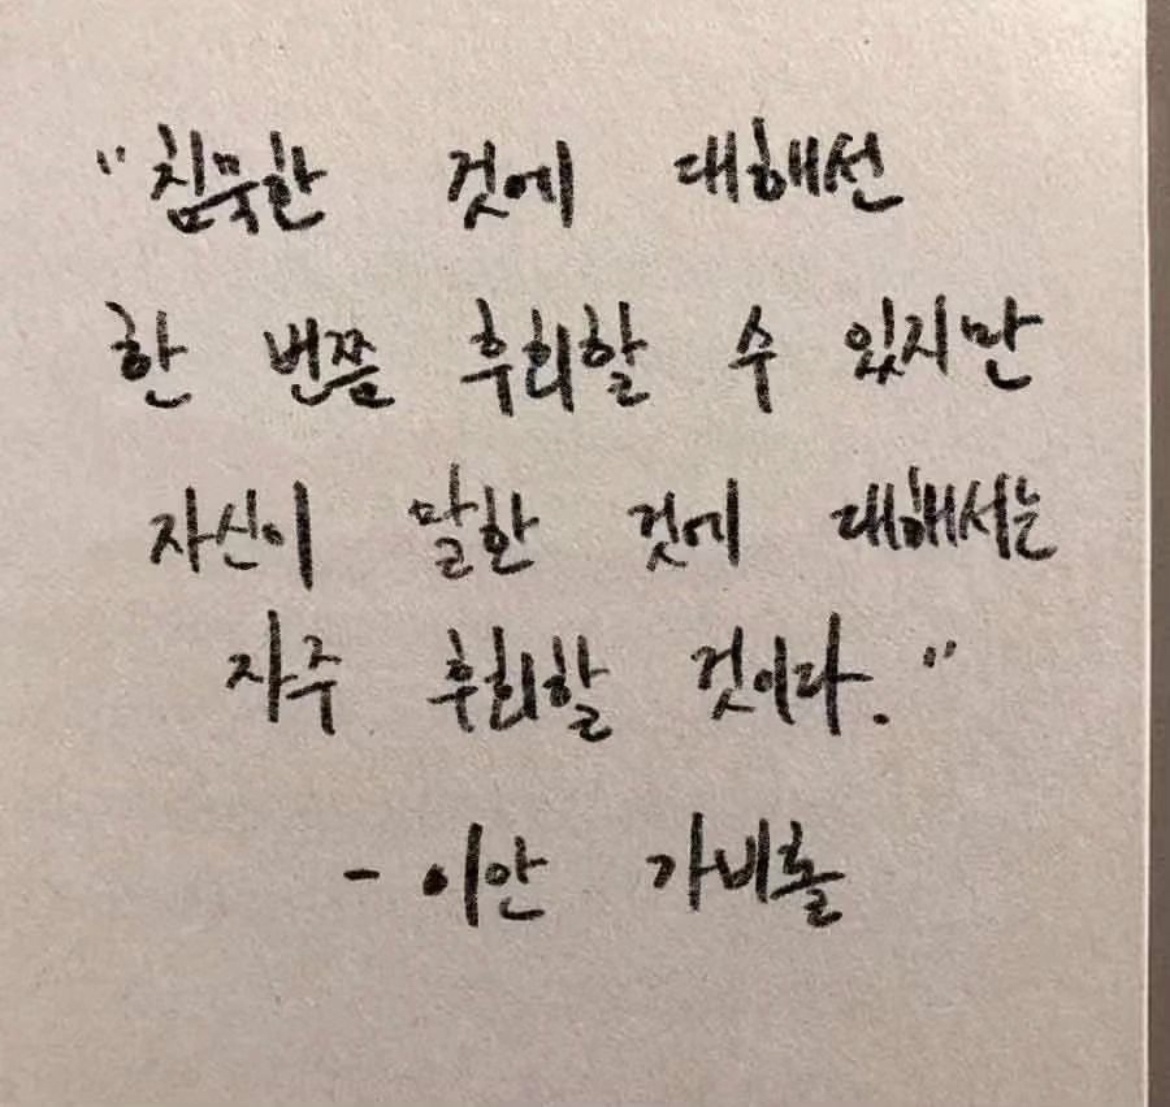 "침묵한 것에 대해선
한 번쯤 후회할 수 있지만
자신이 말한 것에 대해서는
자주 후회할 것이다."
- 이안 가비홀